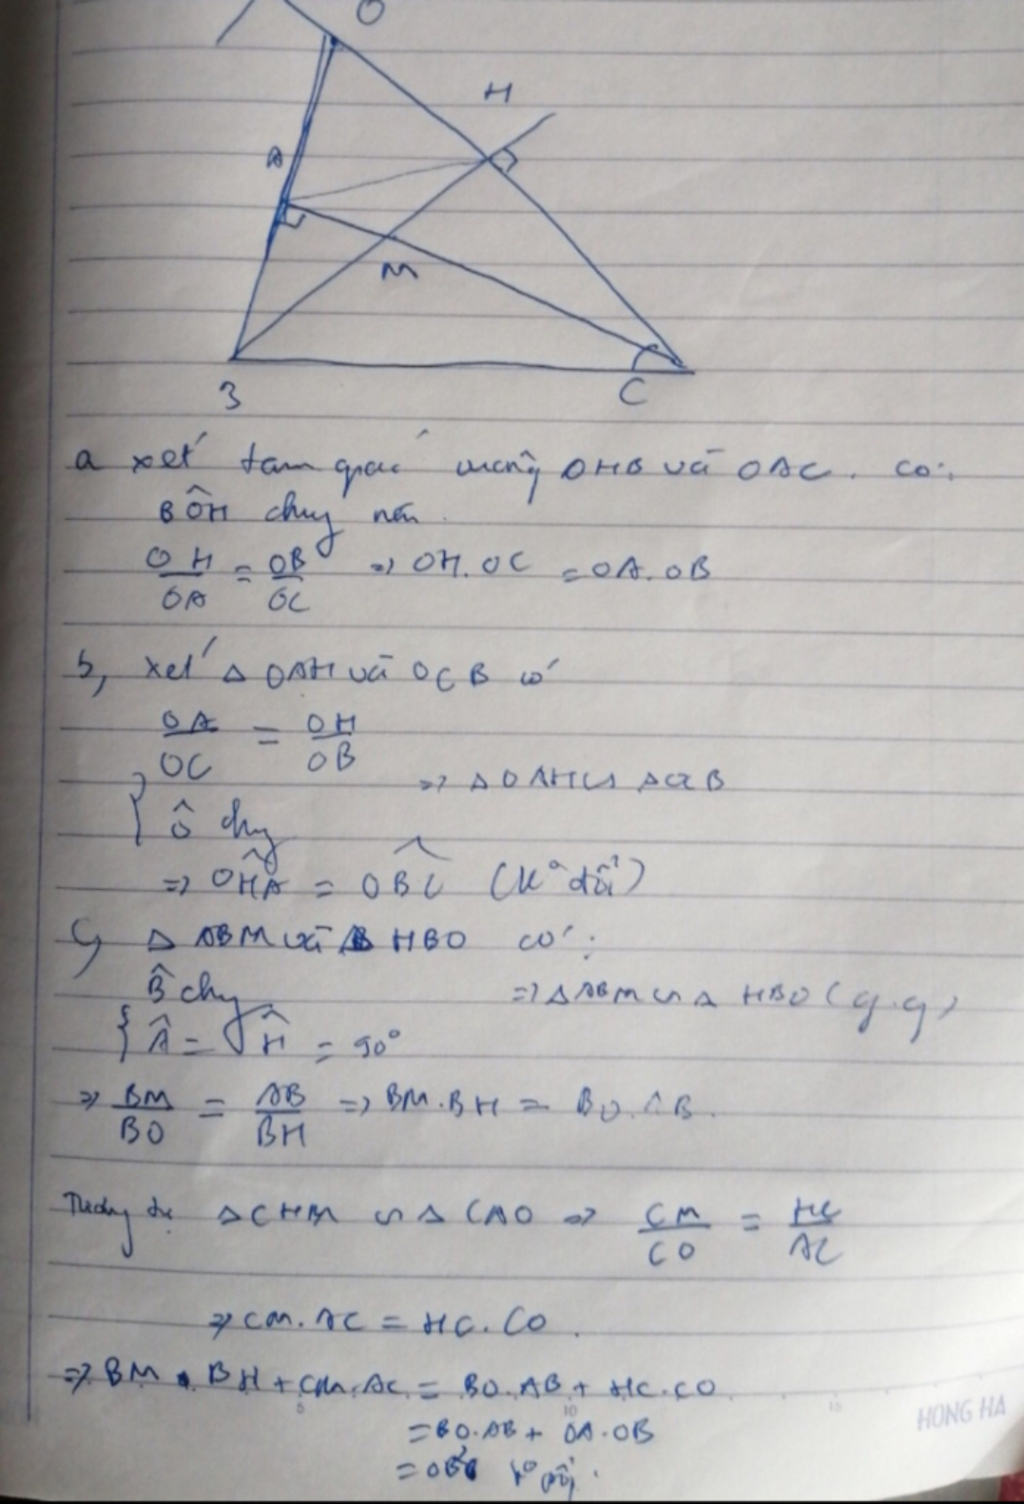 O
H
A
M
B
C
a xét tam giác vuông OHB và OAC. có:
BÔH chung nên
OH/OA = OB/OC => OH.OC = OA.OB
b, xét Δ OAH và OCB có
OA/OC = OH/OB
Ô chung => Δ OAH ∽ Δ OCB
=> OHA = OBC (k° đổi)
c, Δ ABM và Δ HBO có:
B̂ chung => Δ ABM ∽ Δ HBO (g.g)
{ Â = Ĥ = 90°
=> BM/BO = AB/BH => BM.BH = BO.AB.
Tương tự Δ CHM ∽ Δ CAO => CM/CO = HC/AC
=> CM.AC = HC.CO.
=> BM.BH + CM.AC = BO.AB + HC.CO
= BO.AB + OA.OB
k° đổi.
HONG HA